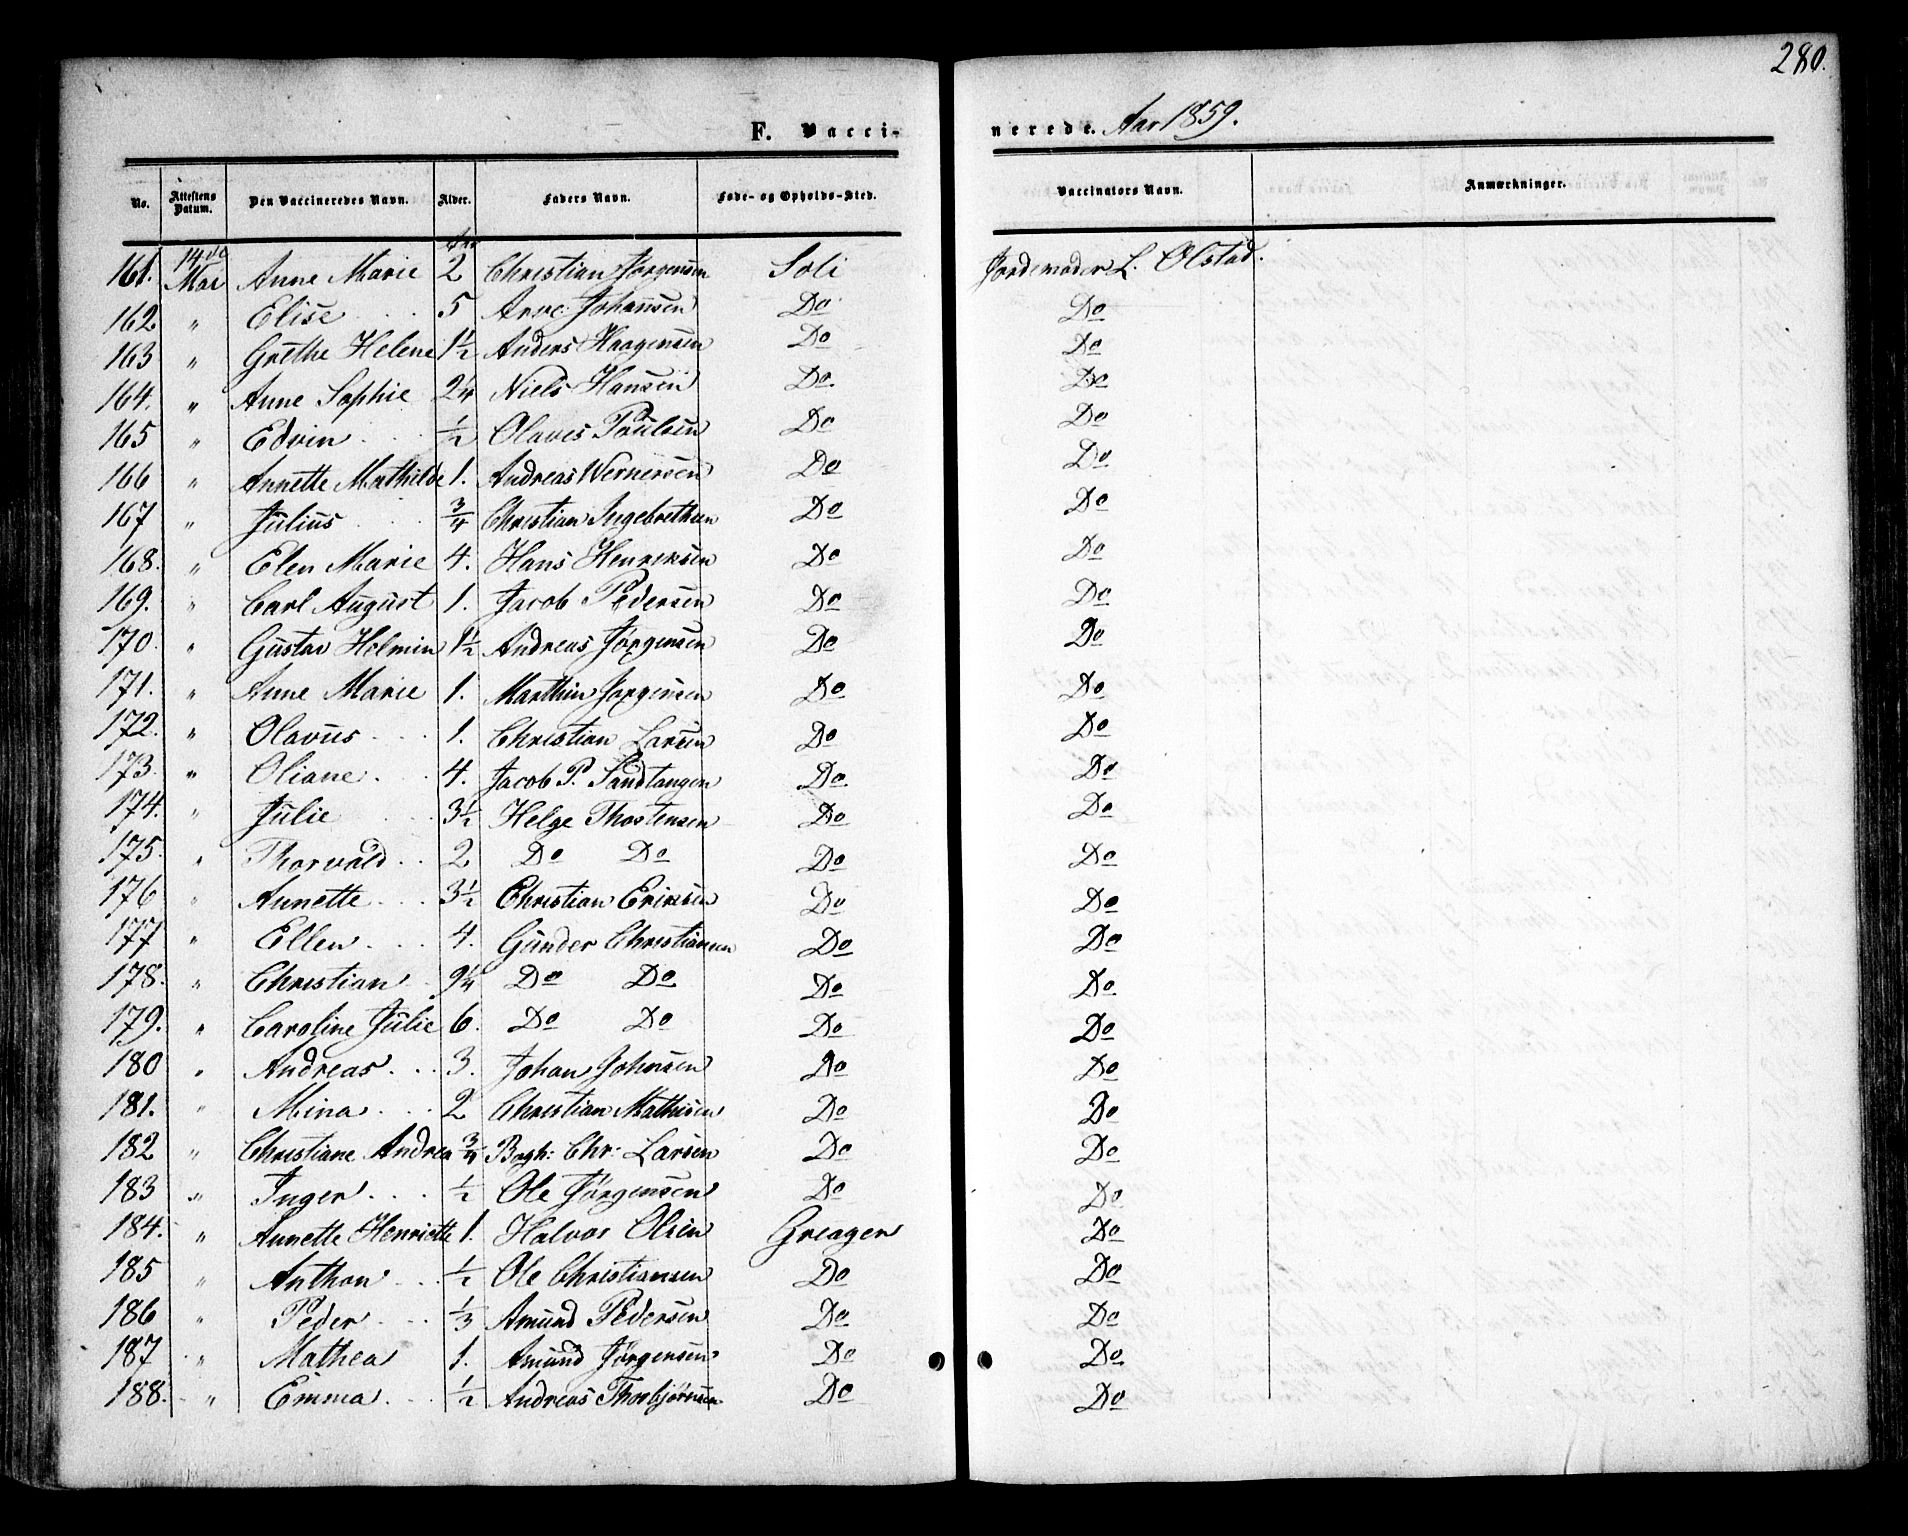 280.
F. Vaccinerede. Aar 1859.
No. Attestens Datum. Den Vaccineredes Navn. Alder. Faders Navn. Føde- og Opholds-Sted. Vaccinators Navn. Anmærkninger.
Aar
161. 14de Mai Anne Marie 2 Christian Jørgensen Soli Jordemoder L. Olstad.
162. " Elise 5 Arve Johansen Do Do
163 " Grethe Helene 1½ Anders Haagensen Do Do
164. " Anne Sophie 2¼ Niels Hansen Do. Do
165 " Edvin ½ Olaves Poulsen Do Do
166 " Annette Mathilde 1. Andreas Wernersen Do Do
167 " Julius ¾ Christian Ingebrethsen Do Do
168. " Elen Marie 4. Hans Henriksen Do Do
169. " Carl August 1. Jacob Pedersen Do Do
170. " Gustav Helmin 1½ Andreas Jørgensen Do Do
171. " Anne Marie 1. Marthin Jørgensen Do Do
172. " Olavus 1. Christian Larsen Do Do
173. " Oliane 4. Jacob P. Sandtangen Do Do
174. " Julie 3½ Helge Thostensen Do Do
175. " Thorvald 2 Do Do Do Do
176 " Annette 3½ Christian Eriksen Do Do
177 " Ellen 4. Gunder Christiansen Do Do
178. " Christian 9¼ Do Do Do Do
179. " Caroline Julie 6. Do Do Do Do
180 " Andreas 3. Johan Johnsen Do Do
181. " Mina 2 Christian Mathisen Do Do
182 " Christiane Andrea ¾ Bogh: Chr: Larsen Do Do
183 " Inger ½ Ole Jørgensen Do Do
184. " Annette Henriette 1. Halvor Olsen Greager Do
185 " Anthon ½ Ole Christiansen Do Do
186 " Peder ⅓ Amund Pedersen Do Do
187 " Mathea 1. Amund Jørgensen Do Do
188. " Emma ½ Andreas Thorbjørnsen Do Do